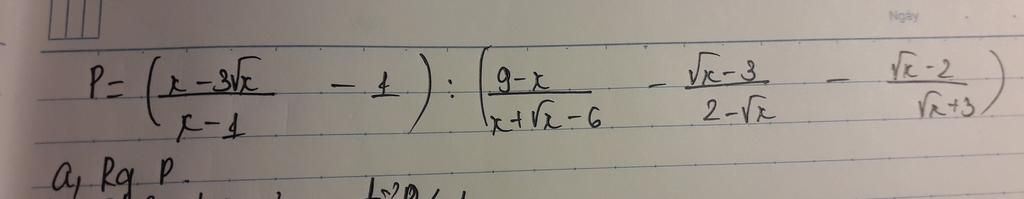 Ngày
P = (x - 3√x / x - 1 - 1) : (9 - x / x + √x - 6 - √x - 3 / 2 - √x - √x - 2 / √x + 3)
a, Rg P.